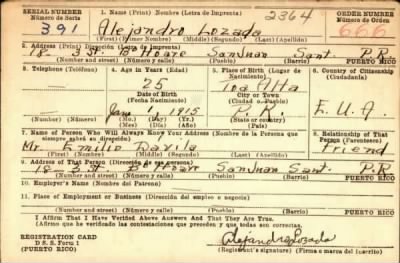 SERIAL NUMBER 1. Name (Print) Nombre (Letra de Imprenta) 2364 ORDER NUMBER
Número de Serie Número de Orden
391 Alejandro Lozada 666
(First) (Primer Nombre) (Middle) (Segundo) (Last) (Apellido)
2. Address (Print) Dirección (Letra de Imprenta)
18 3. St. B Hoare San Juan Sant. P.R.
(Number and street) Número y calle) (Town) (Pueblo) (Municipality) (Municipio) PUERTO RICO
3. Telephone (Teléfono) 4. Age in Years (Edad) 5. Place of Birth (Lugar de Nacimiento) 6. Country of Citizenship (Ciudadanía)
25 Toa Alta
Date of Birth (Fecha Nacimiento) City or Town (Ciudad o Pueblo)
Jan. 1, 1915 P.R. E.U.A.
(Mo.) (Day) (Yr.) State or country
(Mes) (Día) (Año) Estado o país)
7. Name of Person Who Will Always Know Your Address (Nombre de la Persona que siempre sabrá su dirección) 8. Relationship of That Person (Parentesco)
Mr. Emilio Davila Friend
(First) (Nombre) (Middle) (Segundo) (Last) (Apellido)
9. Address of That Person (Dirección de esa persona)
18 3. St. B San Juan Sant. P.R.
(Number and street) (Número y calle) (Town) (Pueblo) (Municipality) (Municipio) PUERTO RICO
10. Employer's Name (Nombre del Patrono)
11. Place of Employment or Business (Dirección del empleo o negocio)
(Number and street) (Número y calle) (Town) (Pueblo) (Municipality) (Municipio) PUERTO RICO
I Affirm That I Have Verified Above Answers And That They Are True.
(Afirmo que he verificado las contestaciones que preceden y que todas son ciertas)
REGISTRATION CARD
D S S. Form 1
(PUERTO RICO)
Alejandro Lozada
(Registrant's signature) (Firma o marca del inscrito)